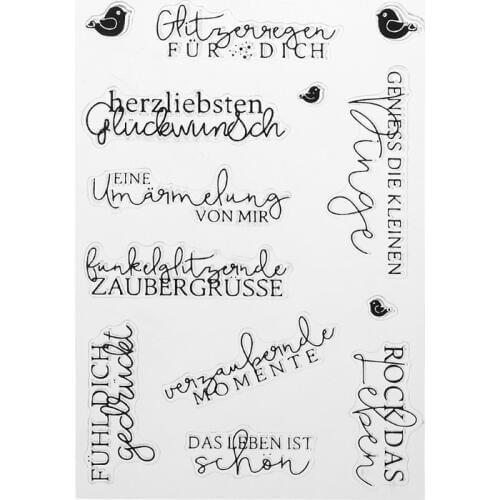 Glitzerregen
FÜR DICH
herzliebsten
Glückwunsch
GENIESS DIE KLEINEN
Dinge
EINE
Umärmelung
VON MIR
funkelglitzernde
ZAUBERGRÜSSE
FÜHL DICH
gedrückt
verzaubernde
MOMENTE
ROCK DAS
Leben
DAS LEBEN IST
schön